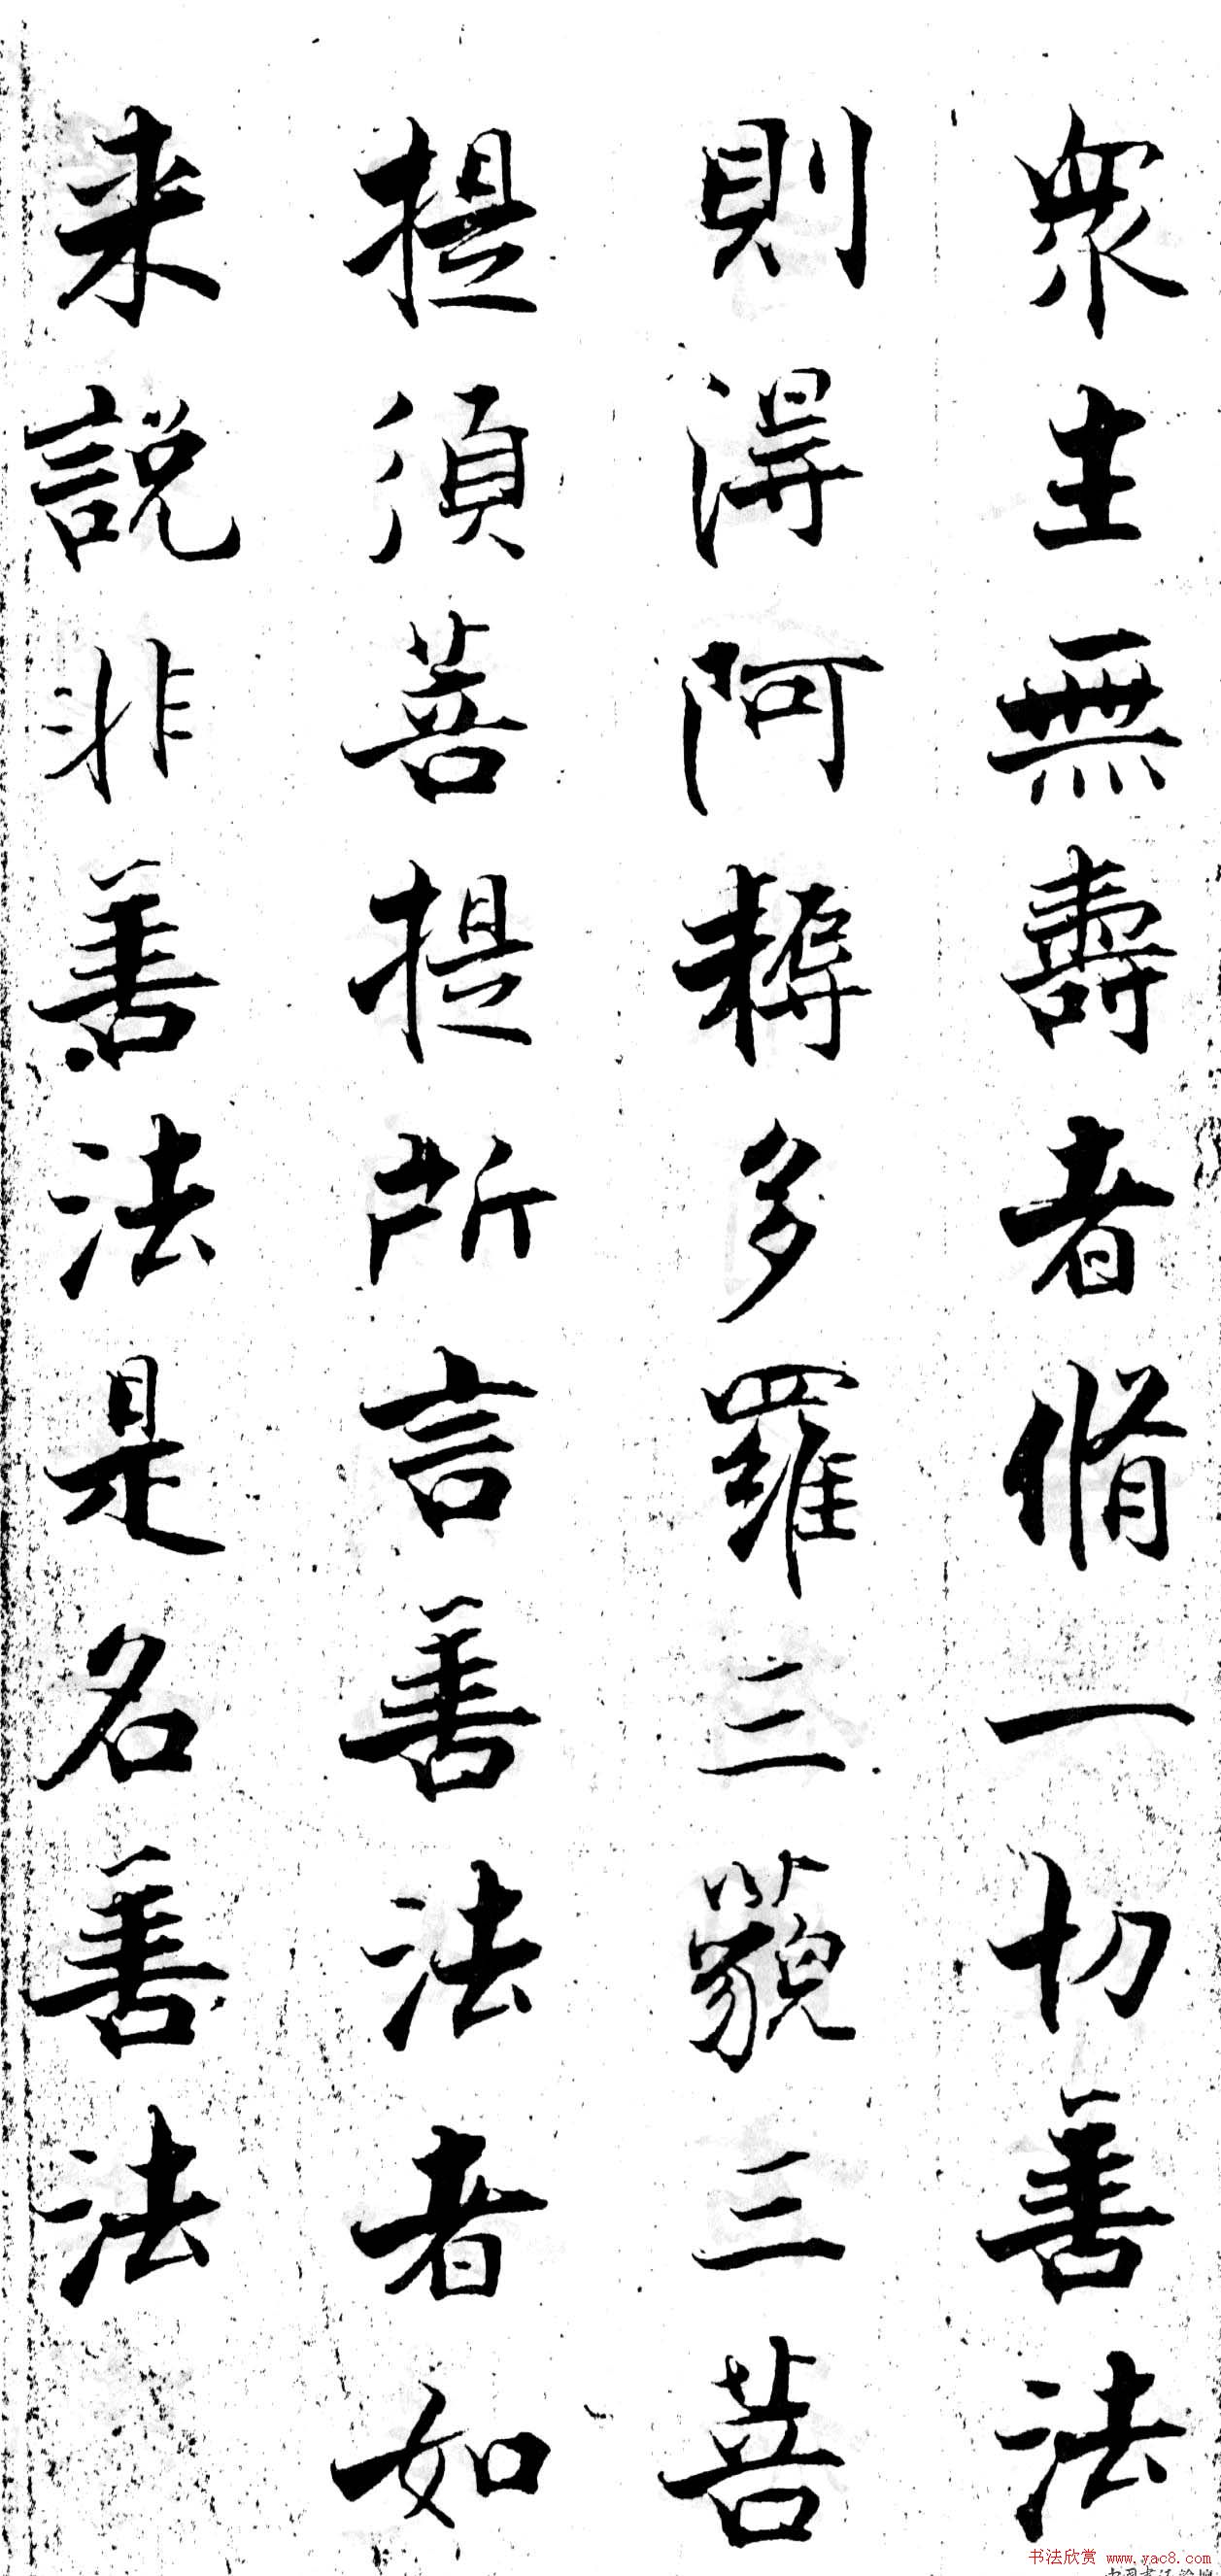 衆生無壽者脩一切善法
則得阿耨多羅三藐三菩
提須菩提所言善法者如
来説非善法是名善法
书法欣赏 www.yac8.com